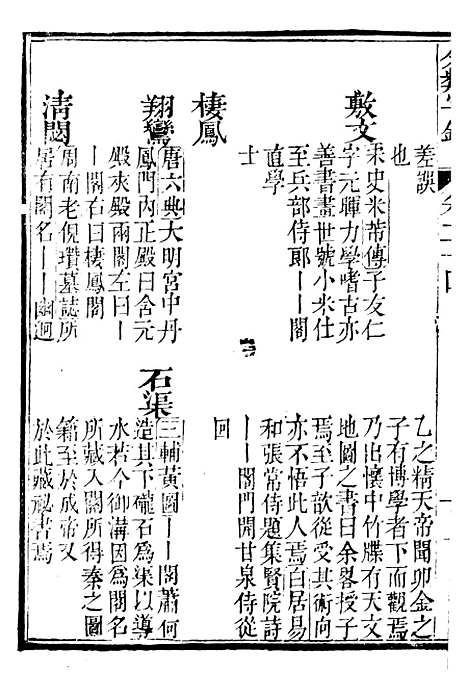 分類字錦 卷二十四
差誤
也
敷文
宋史米芾傳子友仁
字元暉力學嗜古亦
善書畫世號小米仕
至兵部侍郎——閣
直學
士
棲鳳
翔鸞
唐六典大明宮中丹
鳳門內正殿曰含元
殿夾殿兩閣左曰—
—閣右曰棲鳳閣
清閟
周南老倪瓚墓誌所
居有閣名——幽迥
乙之精天帝聞卯金之
子有博學者下而觀焉
乃出懷中竹牒有天文
地圖之書曰余畧授子
焉至子歆從其術向
亦不悟此人焉白居易
和張常侍題集賢院詩
——閣門開甘泉侍從
回
石渠
三輔黃圖——閣蕭何
造其下礲石爲渠以導
水若今御溝因爲閣名
所藏入關所得秦之圖
籍至於成帝又
於此藏祕書焉